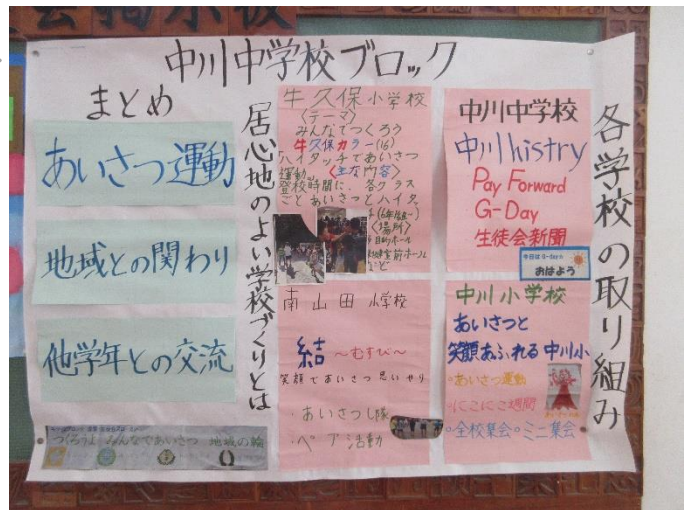 会掲示板
中川中学校ブロック
まとめ
あいさつ運動
地域との関わり
他学年との交流
つくろうよ みんなであいさつ 地域の輪
居心地のよい学校づくりとは
牛久保小学校
〈テーマ〉
みんなでつくろう
牛久保カラー(16)
ハイタッチであいさつ
運動。〈主な内容〉
登校時間に、各クラス
ごとあいさつとハイタ
〈場所〉
南山田小学校
結 〜むすび〜
笑顔であいさつ思いやり
・あいさつし隊
・ペア活動
中川中学校
中川histry
Pay Forward
G-Day
生徒会新聞
今日はG-day
おはよう
中川小学校
あいさつと
笑顔あふれる中川小
・あいさつ運動
・にこにこ週間
・全校集会・ミニ集会
各学校の取り組み